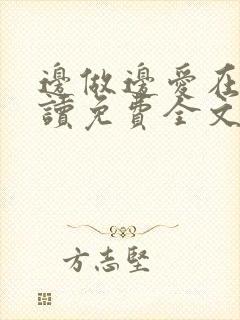 邊做邊愛在
讀免費全文
方志堅